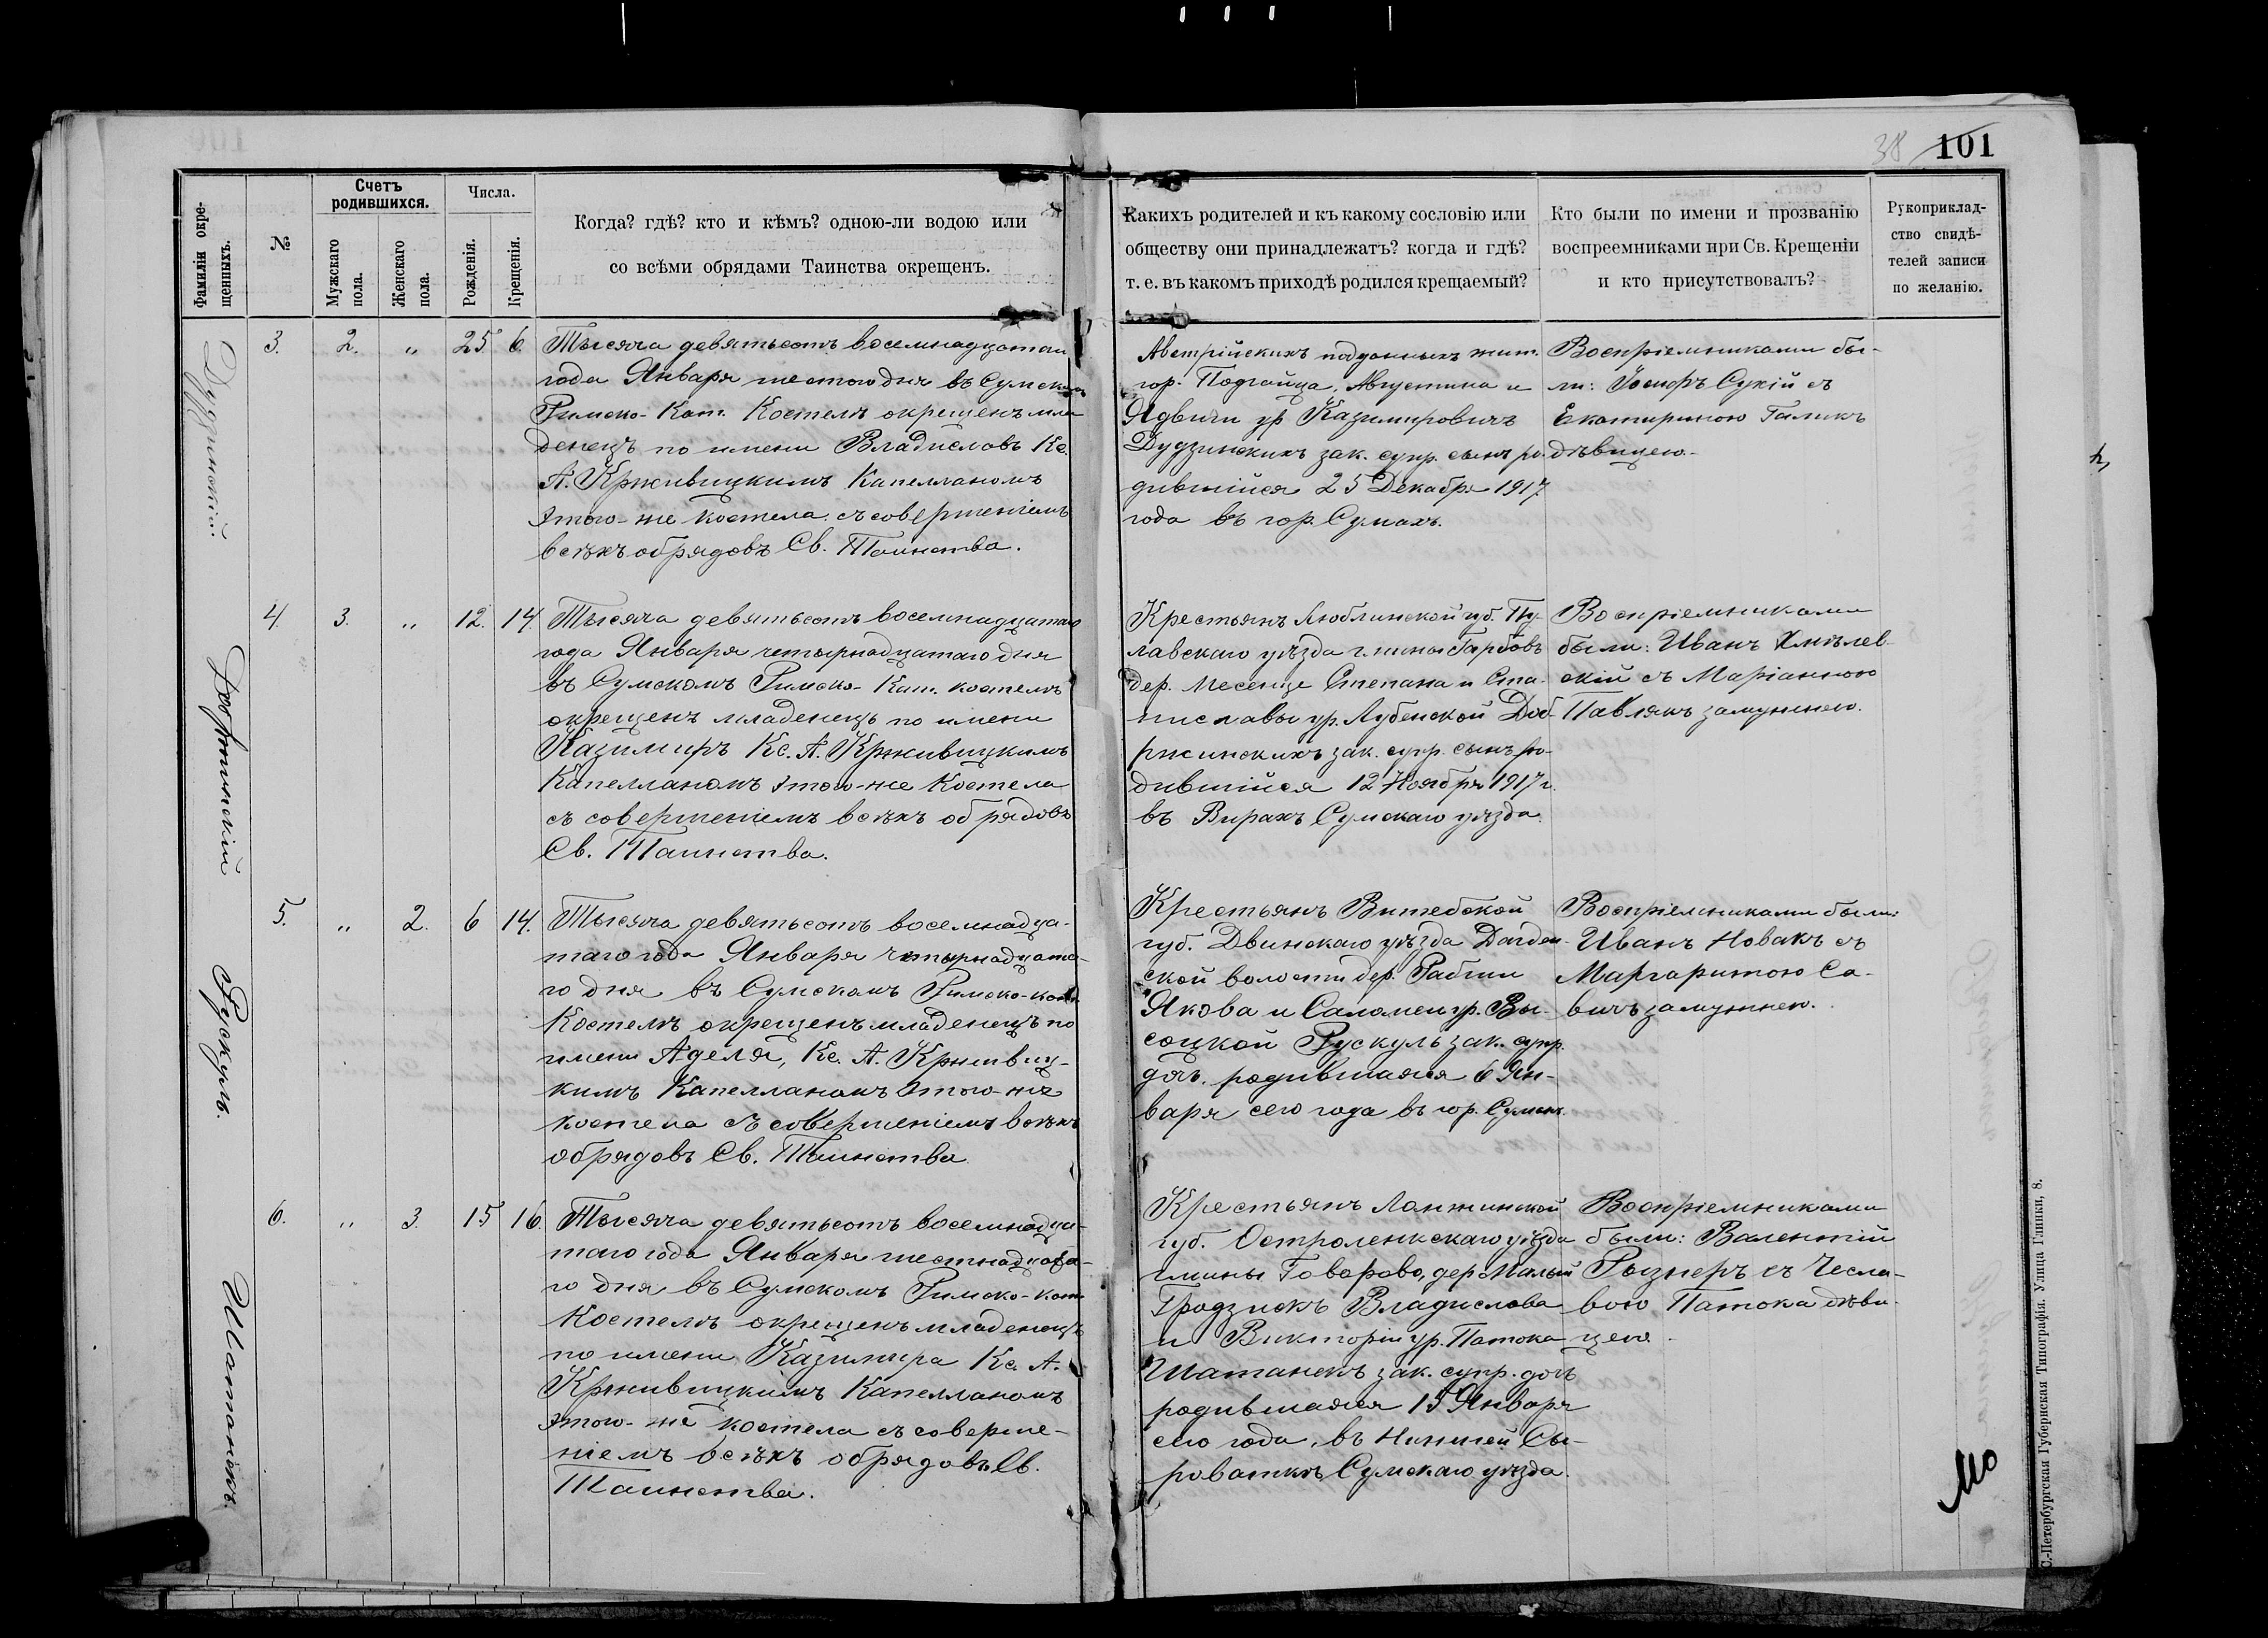 38 101
Фамиліи окре-
щенныхъ.
№
Счетъ
родившихся.
Мужскаго
пола.
Женскаго
пола.
Числа.
Рожденія.
Крещенія.
Когда? гдѣ? кто и кѣмъ? одною-ли водою или
со всѣми обрядами Таинства окрещенъ.
Какихъ родителей и къ какому сословію или
обществу они принадлежатъ? когда и гдѣ?
т. е. въ какомъ приходѣ родился крещаемый?
Кто были по имени и прозванію
воспреемниками при Св. Крещеніи
и кто присутствовалъ?
Рукоприклад-
ство свидѣ-
телей записи
по желанію.
Дудзинскій.
3. 2. „ 25 6.
Тысяча девятьсотъ восемнадцатаго
года Января шестого дня въ Сумскомъ
Римско-Кат. Костелѣ окрещенъ мла
денецъ по имени Владиславъ Кс.
А. Крживицкимъ Капелланомъ
этого-же костела съ совершеніемъ
всѣхъ обрядовъ Св. Таинства.
Австрійскихъ подданныхъ жит.
гор. Подгайца, Августина и
Ядвиги ур. Казимировичъ
Дудзинскихъ зак. супр. сынъ ро-
дившійся 25 Декабря 1917
года въ гор. Сумахъ.
Воспріемниками бы-
ли: Іосифъ Сукій съ
Екатериною Галикъ
дѣвицею.
Добржинскій
4. 3. „ 12. 14.
Тысяча девятьсотъ восемнадцатаго
года Января четырнадцатаго дня
въ Сумскомъ Римско-Кат. костелѣ
окрещенъ младенецъ по имени
Казимиръ Кс. А. Крживицкимъ
Капелланомъ этого-же Костела
съ совершеніемъ всѣхъ обрядовъ
Св. Таинства.
Крестьянъ Люблинской губ. Пу-
лавскаго уѣзда гмины Гарбовъ
дер. Месенце Степана и Ста-
ниславы ур. Лубенской Доб-
ржинскихъ зак. супр. сынъ ро-
дившійся 12 Ноября 1917 г.
въ Вирахъ Сумскаго уѣзда.
Воспріемниками
были: Иванъ Хмѣлев-
скій съ Маріанною
Павлякъ замужнею.
Рускуль.
5. „ 2. 6 14.
Тысяча девятьсотъ восемнадца-
таго года Января четырнадцата-
го дня въ Сумскомъ Римско-кат.
Костелѣ окрещенъ младенецъ по
имени Аделя, Кс. А. Крживиц-
кимъ Капелланомъ этого-же
костела съ совершеніемъ всѣхъ
обрядовъ Св. Таинства.
Крестьянъ Витебской
губ. Двинскаго уѣзда Дагден-
ской волости дер. Рабши
Якова и Саломеи ур. Вы-
соцкой Рускуль зак. супр.
дочь, родившаяся 6 Ян-
варя сего года въ гор. Сумахъ.
Воспріемниками были:
Иванъ Новакъ съ
Маргаритою Са-
вичъ замужнею.
Шатанекъ.
6. „ 3. 15 16.
Тысяча девятьсотъ восемнадца-
таго года Января шестнадцата-
го дня въ Сумскомъ Римско-кат.
Костелѣ окрещенъ младенецъ
по имени Казимира Кс. А.
Крживицкимъ Капелланомъ
этого-же костела съ соверше-
ніемъ всѣхъ обрядовъ Св.
Таинства.
Крестьянъ Ломжинской
губ. Остроленкскаго уѣзда
гмины Говорово, дер. Малый
Гродзискъ Владислава
и Викторіи ур. Патока
Шатанекъ зак. супр. дочь
родившаяся 15 Января
сего года, въ Нижней Сы-
роваткѣ Сумскаго уѣзда.
Воспріемниками
были: Валентій
Рызнеръ съ Чесла-
вою Патока дѣви-
цею.
С.-Петербургская Губернская Типографія. Улица Глинки, 8.